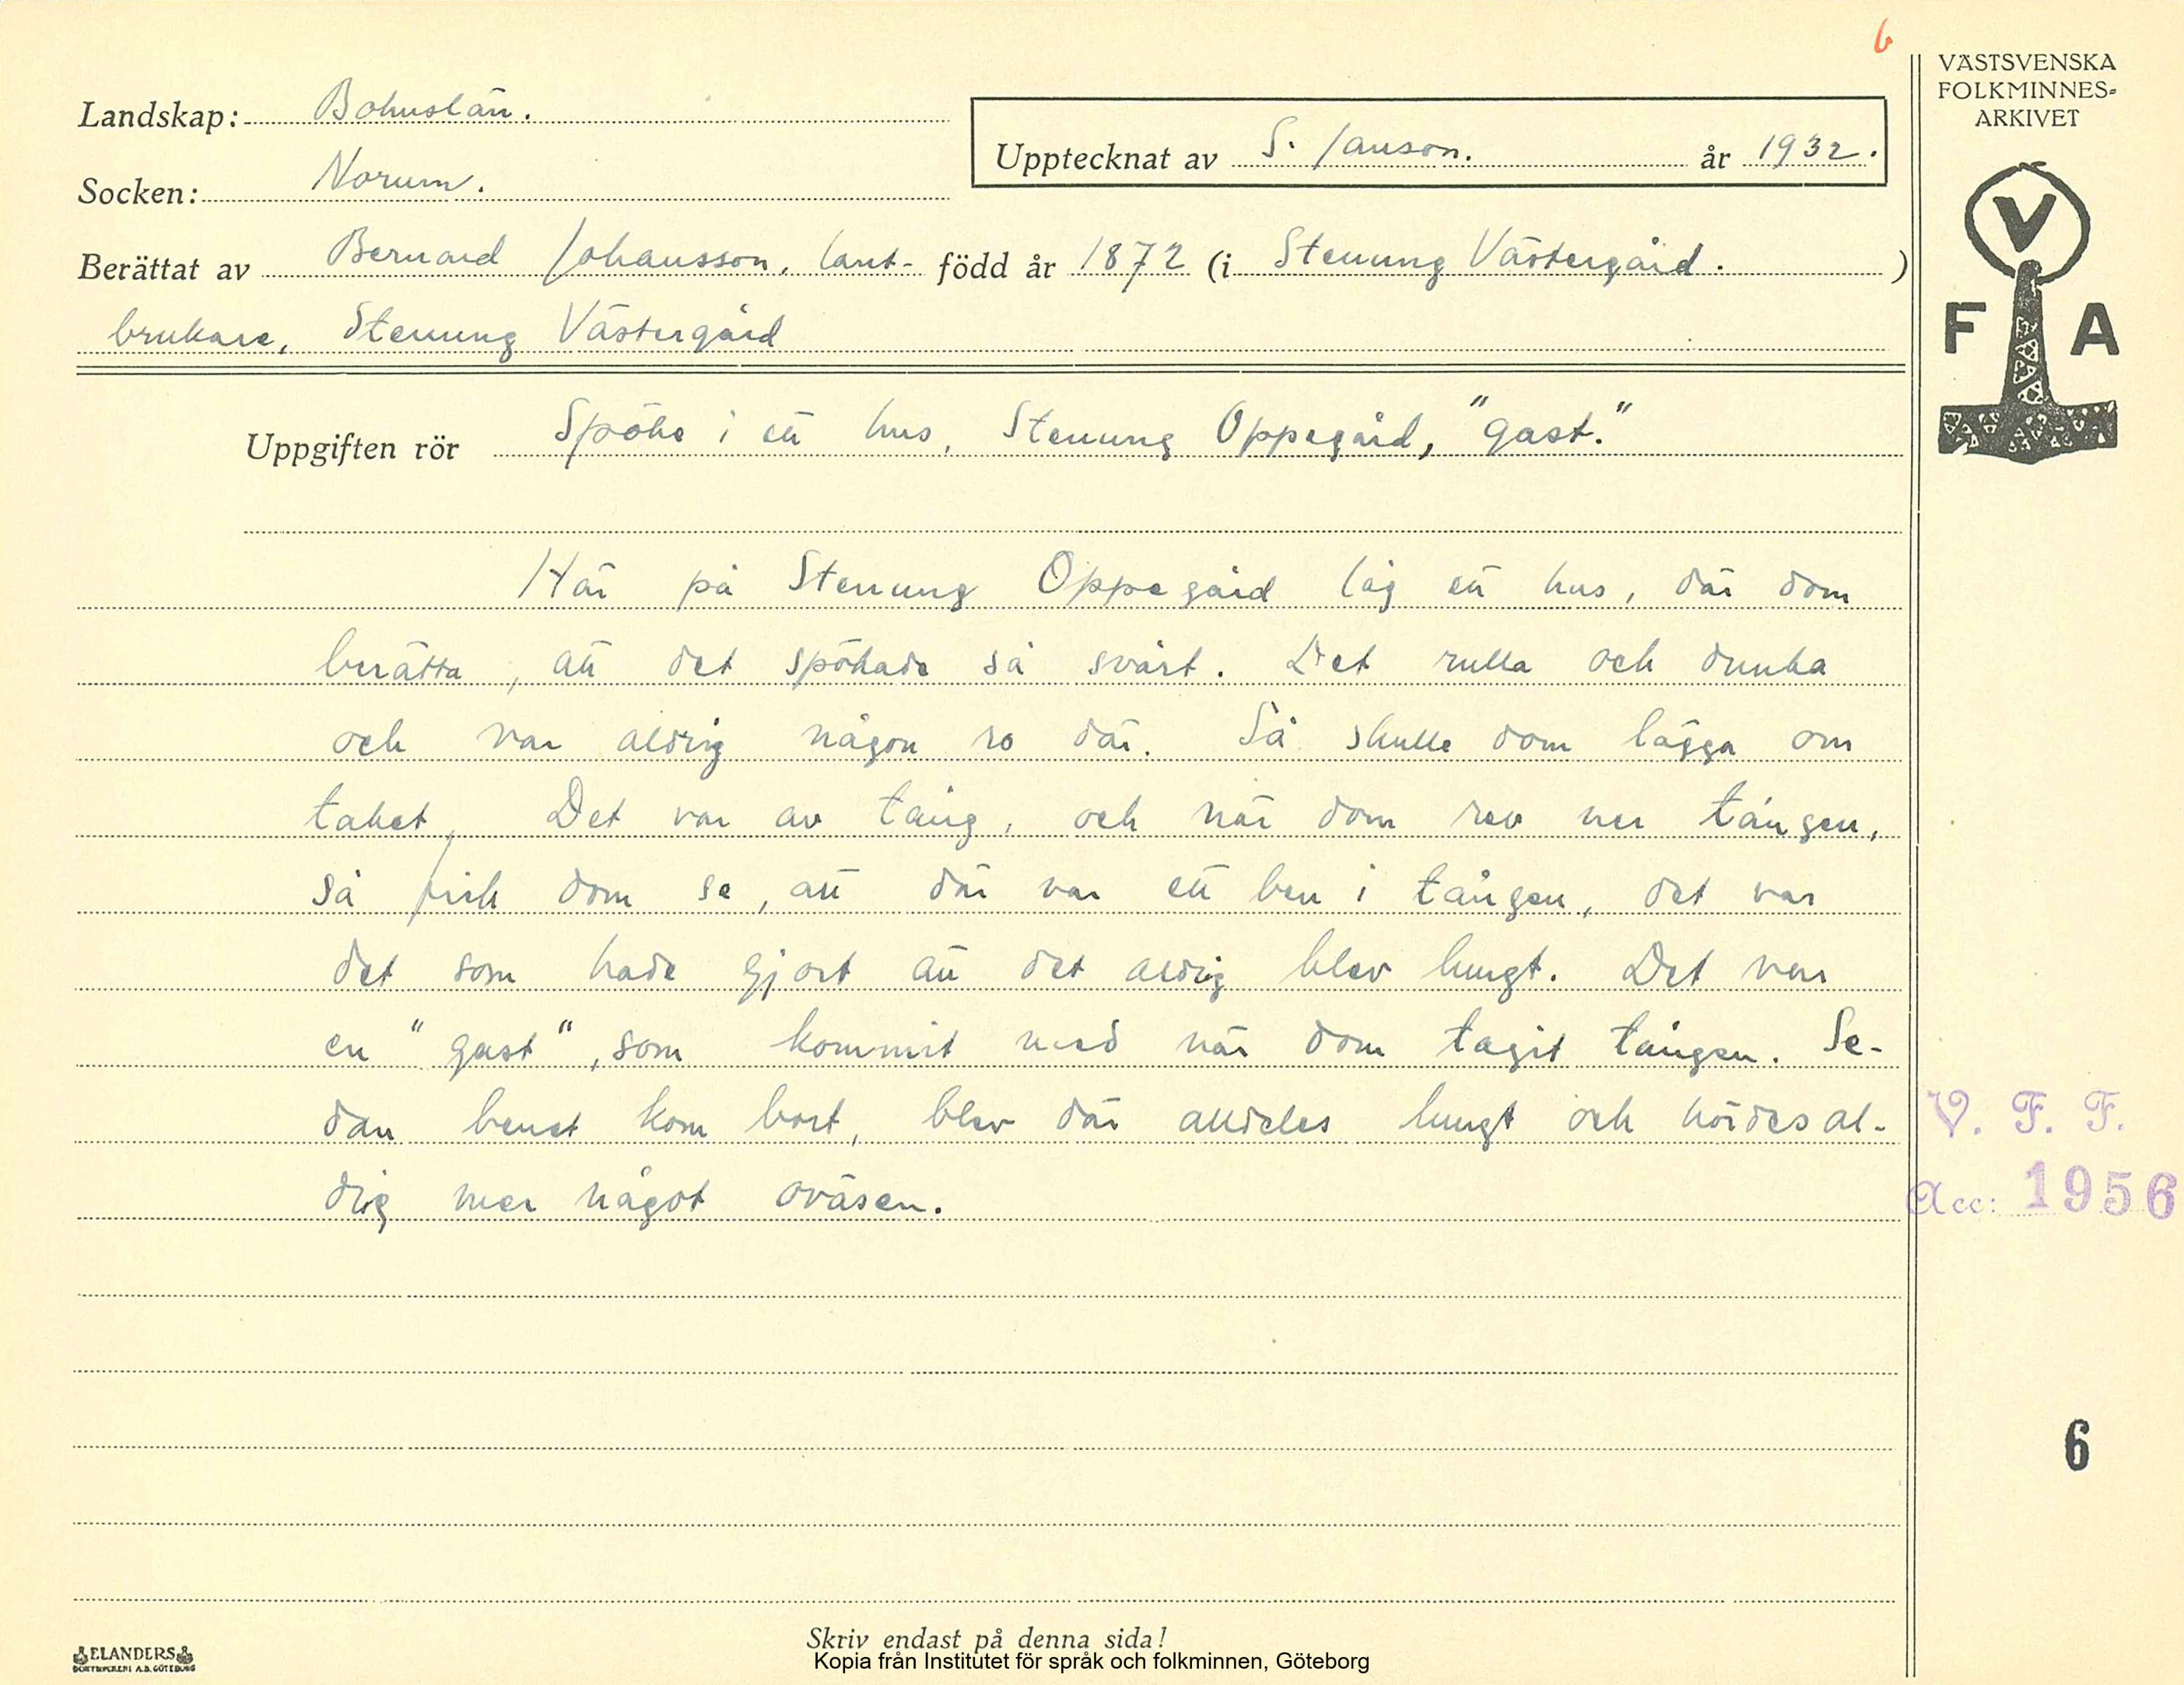 6
VÄSTSVENSKA
FOLKMINNES-
ARKIVET
Landskap: Bohuslän.
Upptecknat av S. Janson. år 1932.
Socken: Norum.
Berättat av Bernard Johansson, lant- född år 1872 (i Stenung Västergård. )
brukare, Stenung Västergård
V
F A
Uppgiften rör Spöke i ett hus, Stenung Oppegård, "gast."
Här på Stenung Oppegård låg ett hus, där dom
berätta, att det spökade så svårt. Det rulla och dunka
och var aldrig någon ro där. Så skulle dom lägga om
taket. Det var av tång, och när dom rev ner tången,
så fick dom se, att där var ett ben i tången, det var
det som hade gjort att det aldrig blev lungt. Det var
en "gast", som kommit med när dom tagit tången. Se-
dan benet kom bort, blev där alldeles lungt och hördes al-
drig mer något oväsen.
V. F. F.
Acc: 1956
6
ELANDERS
BOKTRYCKERI A.B. GÖTEBORG
Skriv endast på denna sida!
Kopia från Institutet för språk och folkminnen, Göteborg